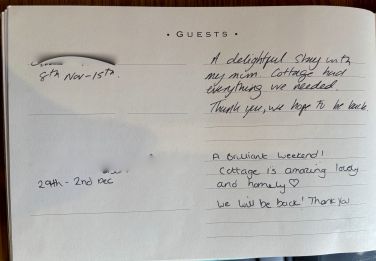 • GUESTS •
8th Nov-15th.
A delightful stay with
my mum. Cottage had
everything we needed.
Thank you, we hope to be back
29th - 2nd Dec
A Brilliant weekend!
Cottage is amazing
and homely ♡
We will be back! Thank you